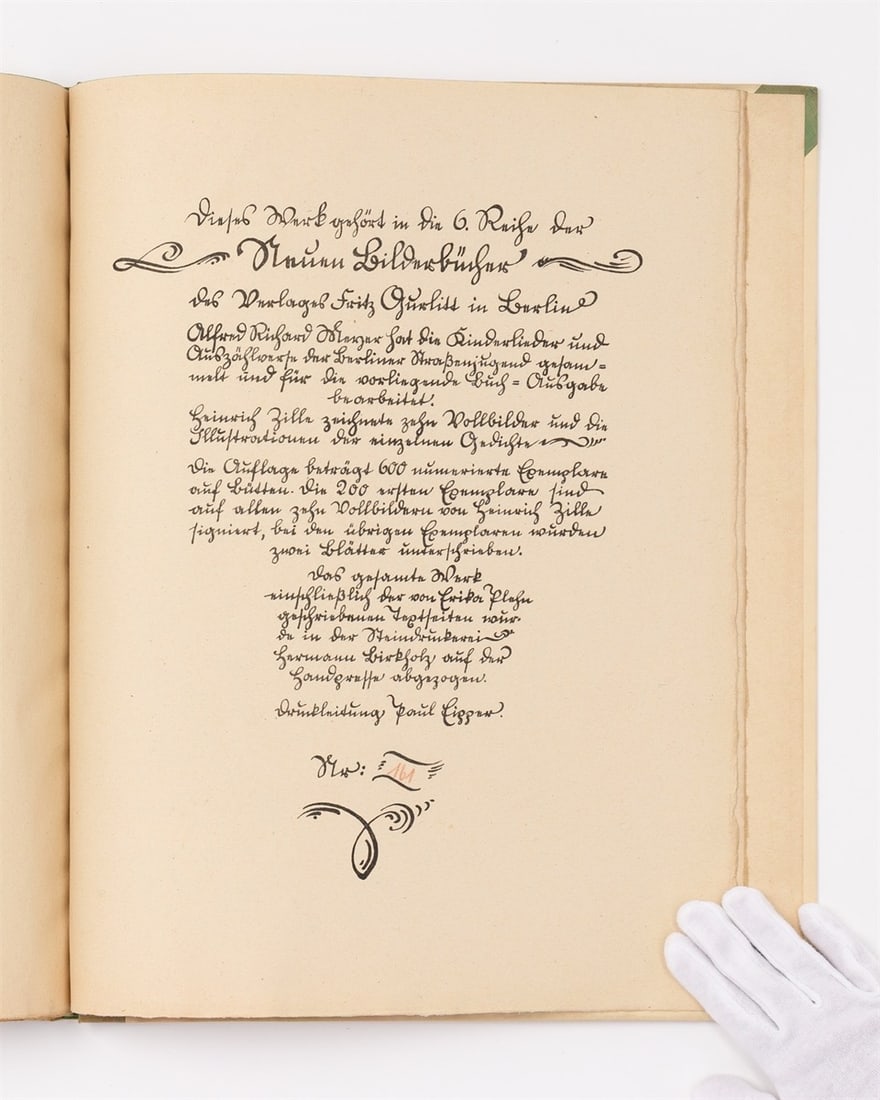 Dieses Werk gehört in die 6. Reihe der
Neuen Bilderbücher
des Verlages Fritz Gurlitt in Berlin
Alfred Richard Meyer hat die Kinderlieder und
Auszählverse der Berliner Straßenjugend gesam=
melt und für die vorliegende Buch=Ausgabe
bearbeitet.
Heinrich Zille zeichnete zehn Vollbilder und die
Illustrationen der einzelnen Gedichte
Die Auflage beträgt 600 numerierte Exemplare
auf Bütten. Die 200 ersten Exemplare sind
auf allen zehn Vollbildern von Heinrich Zille
signiert, bei den übrigen Exemplaren wurden
zwei Blätter unterschrieben.
Das gesamte Werk
einschließlich der von Erika Plehn
geschriebenen Textseiten wur=
de in der Steindruckerei
Hermann Birkholz auf der
Handpresse abgezogen.
Druckleitung Paul Eipper.
Nr: 161